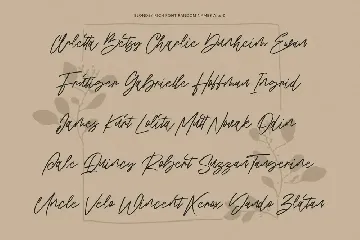 Arletta Betsy Charlie Dunheim Evan
Fruttiger Gabrielle Hoffman Ingrid
James Kurt Lolita Matt Novak Odin
Pale Quincy Robert Suzzan Tangerine
Uncle Velo Wincent Xerox Yando Zlatan